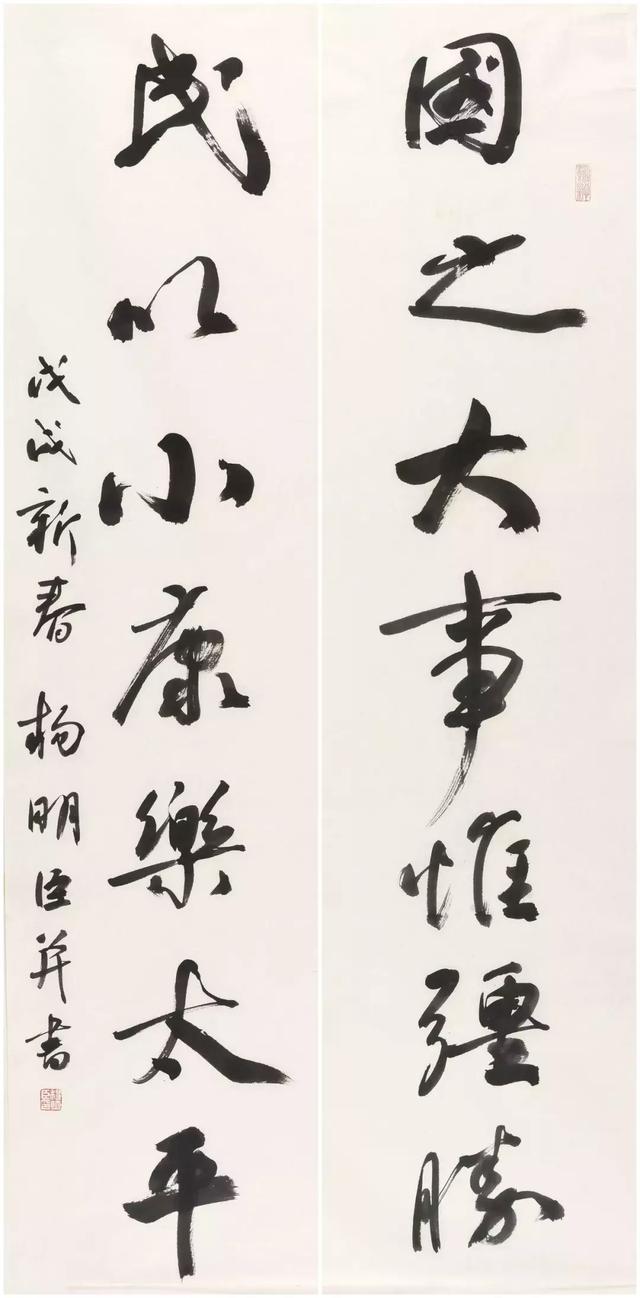 國之大事惟疆勝
民以小康樂太平
戊戌新春 楊明臣并書